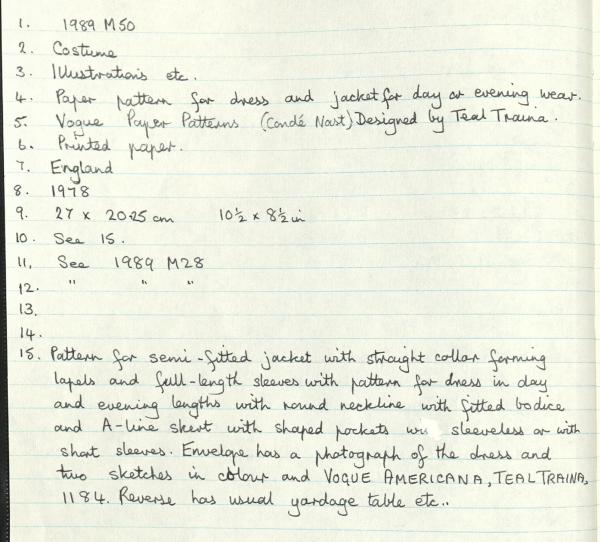 1. 1989 M50
2. Costume
3. Illustrations etc.
4. Paper pattern for dress and jacket for day or evening wear.
5. Vogue Paper Patterns (Condé Nast) Designed by Teal Traina.
6. Printed paper.
7. England
8. 1978
9. 27 x 20.25 cm 10½ x 8½ in
10. See 15.
11. See 1989 M28
12. " " "
13.
14.
15. Pattern for semi-fitted jacket with straight collar forming
lapels and full-length sleeves with pattern for dress in day
and evening lengths with round neckline with fitted bodice
and A-line skirt with shaped pockets sleeveless or with
short sleeves. Envelope has a photograph of the dress and
two sketches in colour and VOGUE AMERICANA, TEAL TRAINA,
1184. Reverse has usual yardage table etc..